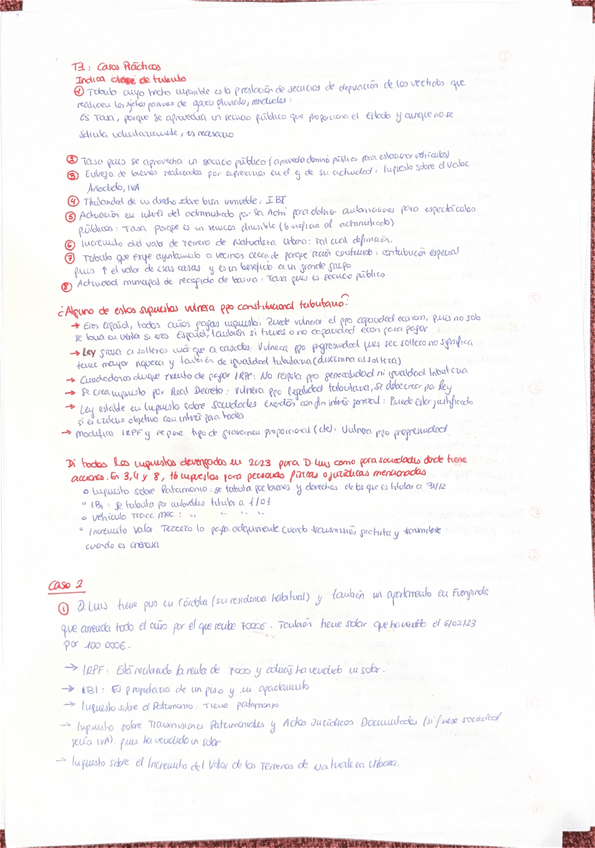 T1: Casos Prácticos
Indica clase de tributo
① Tributo cuyo hecho imponible es la prestación de servicios de depuración de los vertidos que
realicen los sujetos pasivos de aguas pluviales, residuales:
Es Tasa, porque se aprovecha un servicio público que proporciona el Estado y aunque no se
solicita voluntariamente, es necesario
② Tasa pues se aprovecha un servicio público (aprovecha dominio público para estacionar vehículos)
③ Entrega de bienes realizadas por empresarios en el ej de su actividad: Impuesto sobre el Valor
Añadido, IVA
④ Titularidad de un dcho sobre bien inmueble, IBI
⑤ Actuación en interés del administrado por la Admi para obtener autorizaciones para espectáculos
públicos: Tasa porque es un servicio divisible (beneficia al administrado)
⑥ Incremento del valor de Terreno de Naturaleza Urbana: Tal cual definición.
⑦ Tributo que exige ayuntamiento a vecinos cercanos de parque recién construido: contribución especial
pues ↑ el valor de esas casas y es un beneficio a un grande grupo
⑧ Actividad municipal de recogida de basura: Tasa pues es servicio público
¿Alguno de estos supuestos vulnera ppo constitucional tributario?
→ Eres Español, todos años pagas impuesto: Puede vulnerar el ppo capacidad econom, pues no solo
se basa en verla si eres Español, también si tienes o no capacidad econ para pagar
→ Ley grava a solteros más que a casados. Vulnera ppo progresividad pues ser soltero no significa
tiene mayor riqueza y también de igualdad tributaria (discrimina al soltero)
→ Ciudadanos de Duque exento de pagar IRPF: No respeta ppo generalidad ni igualdad tributaria
→ Se crea impuesto por Real Decreto: Vulnera ppo legalidad tributaria, se debe crear por Ley
→ Ley estable en Impuesto sobre Sociedades exentos con fin interés general: Puede estar justificado
si es criterio objetivo con interés para todos
→ modifica IRPF y se pone tipo de gravamen proporcional (cte): Vulnera ppo progresividad
Di todos los impuestos devengados en 2023 para D. Luis como para sociedades donde tiene
acciones. En 3, 4 y 8, tb impuestos para personas físicas o jurídicas mencionadas
○ Impuesto sobre Patrimonio: se tributa por bienes y derechos de los que es titular a 31/12
○ IBI: se tributa por inmuebles titular a 1/01
○ vehículo Tracc Mec: " " " "
○ Incremento Valor Terreno lo paga adquirente cuando transmisión gratuita y transmitente
cuando es onerosa
Caso 2
① D. Luis tiene piso en Córdoba (su residencia habitual) y también un apartamento en Fuengirola
que arrienda todo el año por el que recibe 7000€. También tiene solar que ha vendido el 6/02/23
por 100 000€.
→ IRPF: Está recibiendo la renta de 7000 y además ha vendido un solar.
→ IBI: Es propietario de un piso y un apartamento
→ Impuesto sobre el Patrimonio: Tiene patrimonio
→ Impuesto sobre Transmisiones Patrimoniales y Actos Jurídicos Documentados (si fuese sociedad
sería IVA). pues ha vendido un solar
→ Impuesto sobre el Incremento del Valor de los Terrenos de Naturaleza Urbana.